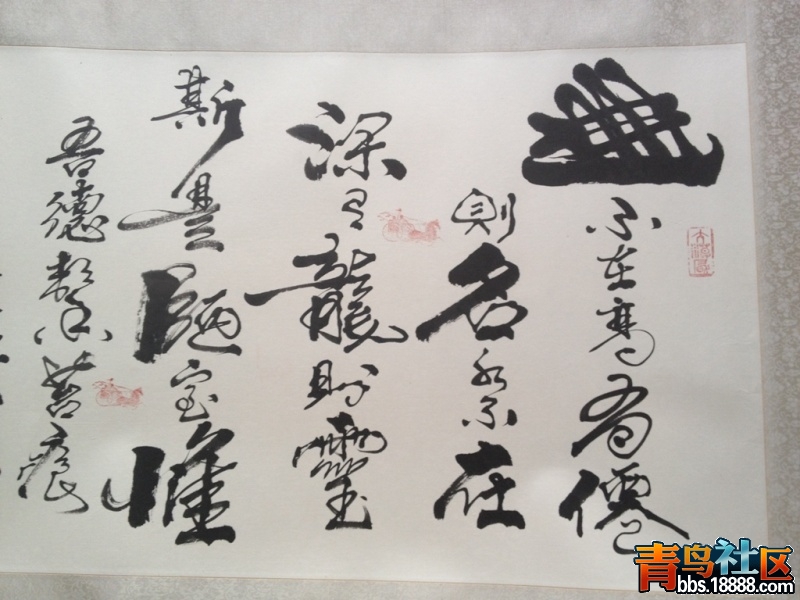 山不在髙有僊
則名水不在
深有龍則靈
斯是陋室惟
吾德馨苔痕
青鸟社区
bbs.18888.com